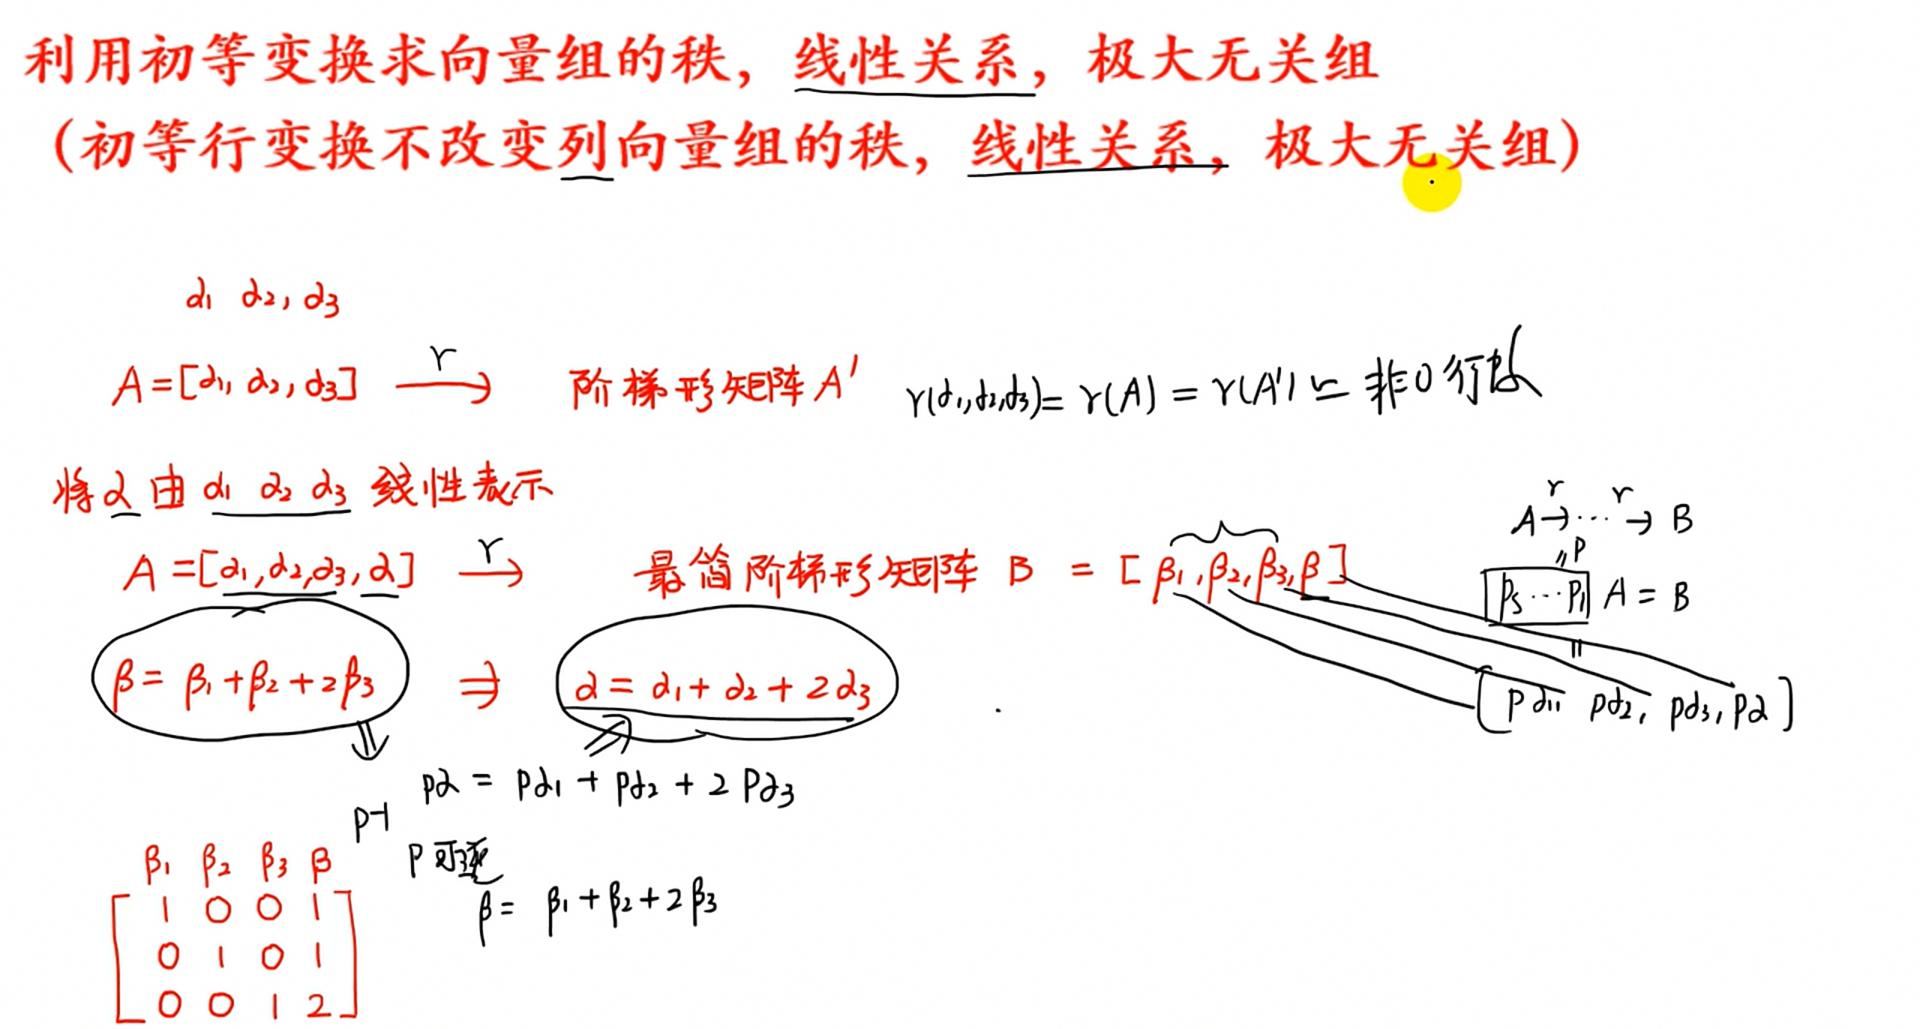 利用初等变换求向量组的秩，线性关系，极大无关组
（初等行变换不改变列向量组的秩，线性关系，极大无关组）
α₁ α₂, α₃
A=[α₁, α₂, α₃] r→ 阶梯形矩阵A' r(α₁,α₂,α₃)= r(A) = r(A') = 非0行数
将α由 α₁ α₂ α₃ 线性表示
A r→ ··· r→ B
A=[α₁,α₂,α₃,α] r→ 最简阶梯形矩阵 B = [β₁,β₂,β₃,β]
‖P
P₅···P₁ A = B
‖
β= β₁+β₂+2β₃ ⇒ α= α₁+ α₂+ 2α₃
[Pα₁, Pα₂, Pα₃, Pα]
⇓
Pα = Pα₁+ Pα₂+ 2Pα₃
P⁻¹
P可逆
β₁ β₂ β₃ β
β= β₁+β₂+2β₃
1 0 0 1
0 1 0 1
0 0 1 2